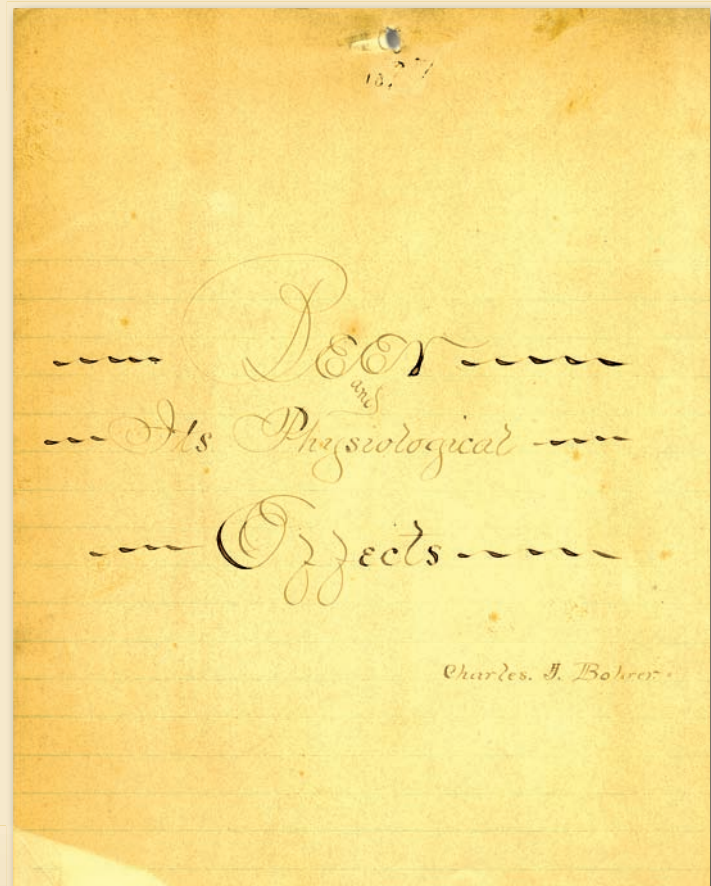 Beer
and
Its Physiological
Effects
Charles. J. Bohrer.